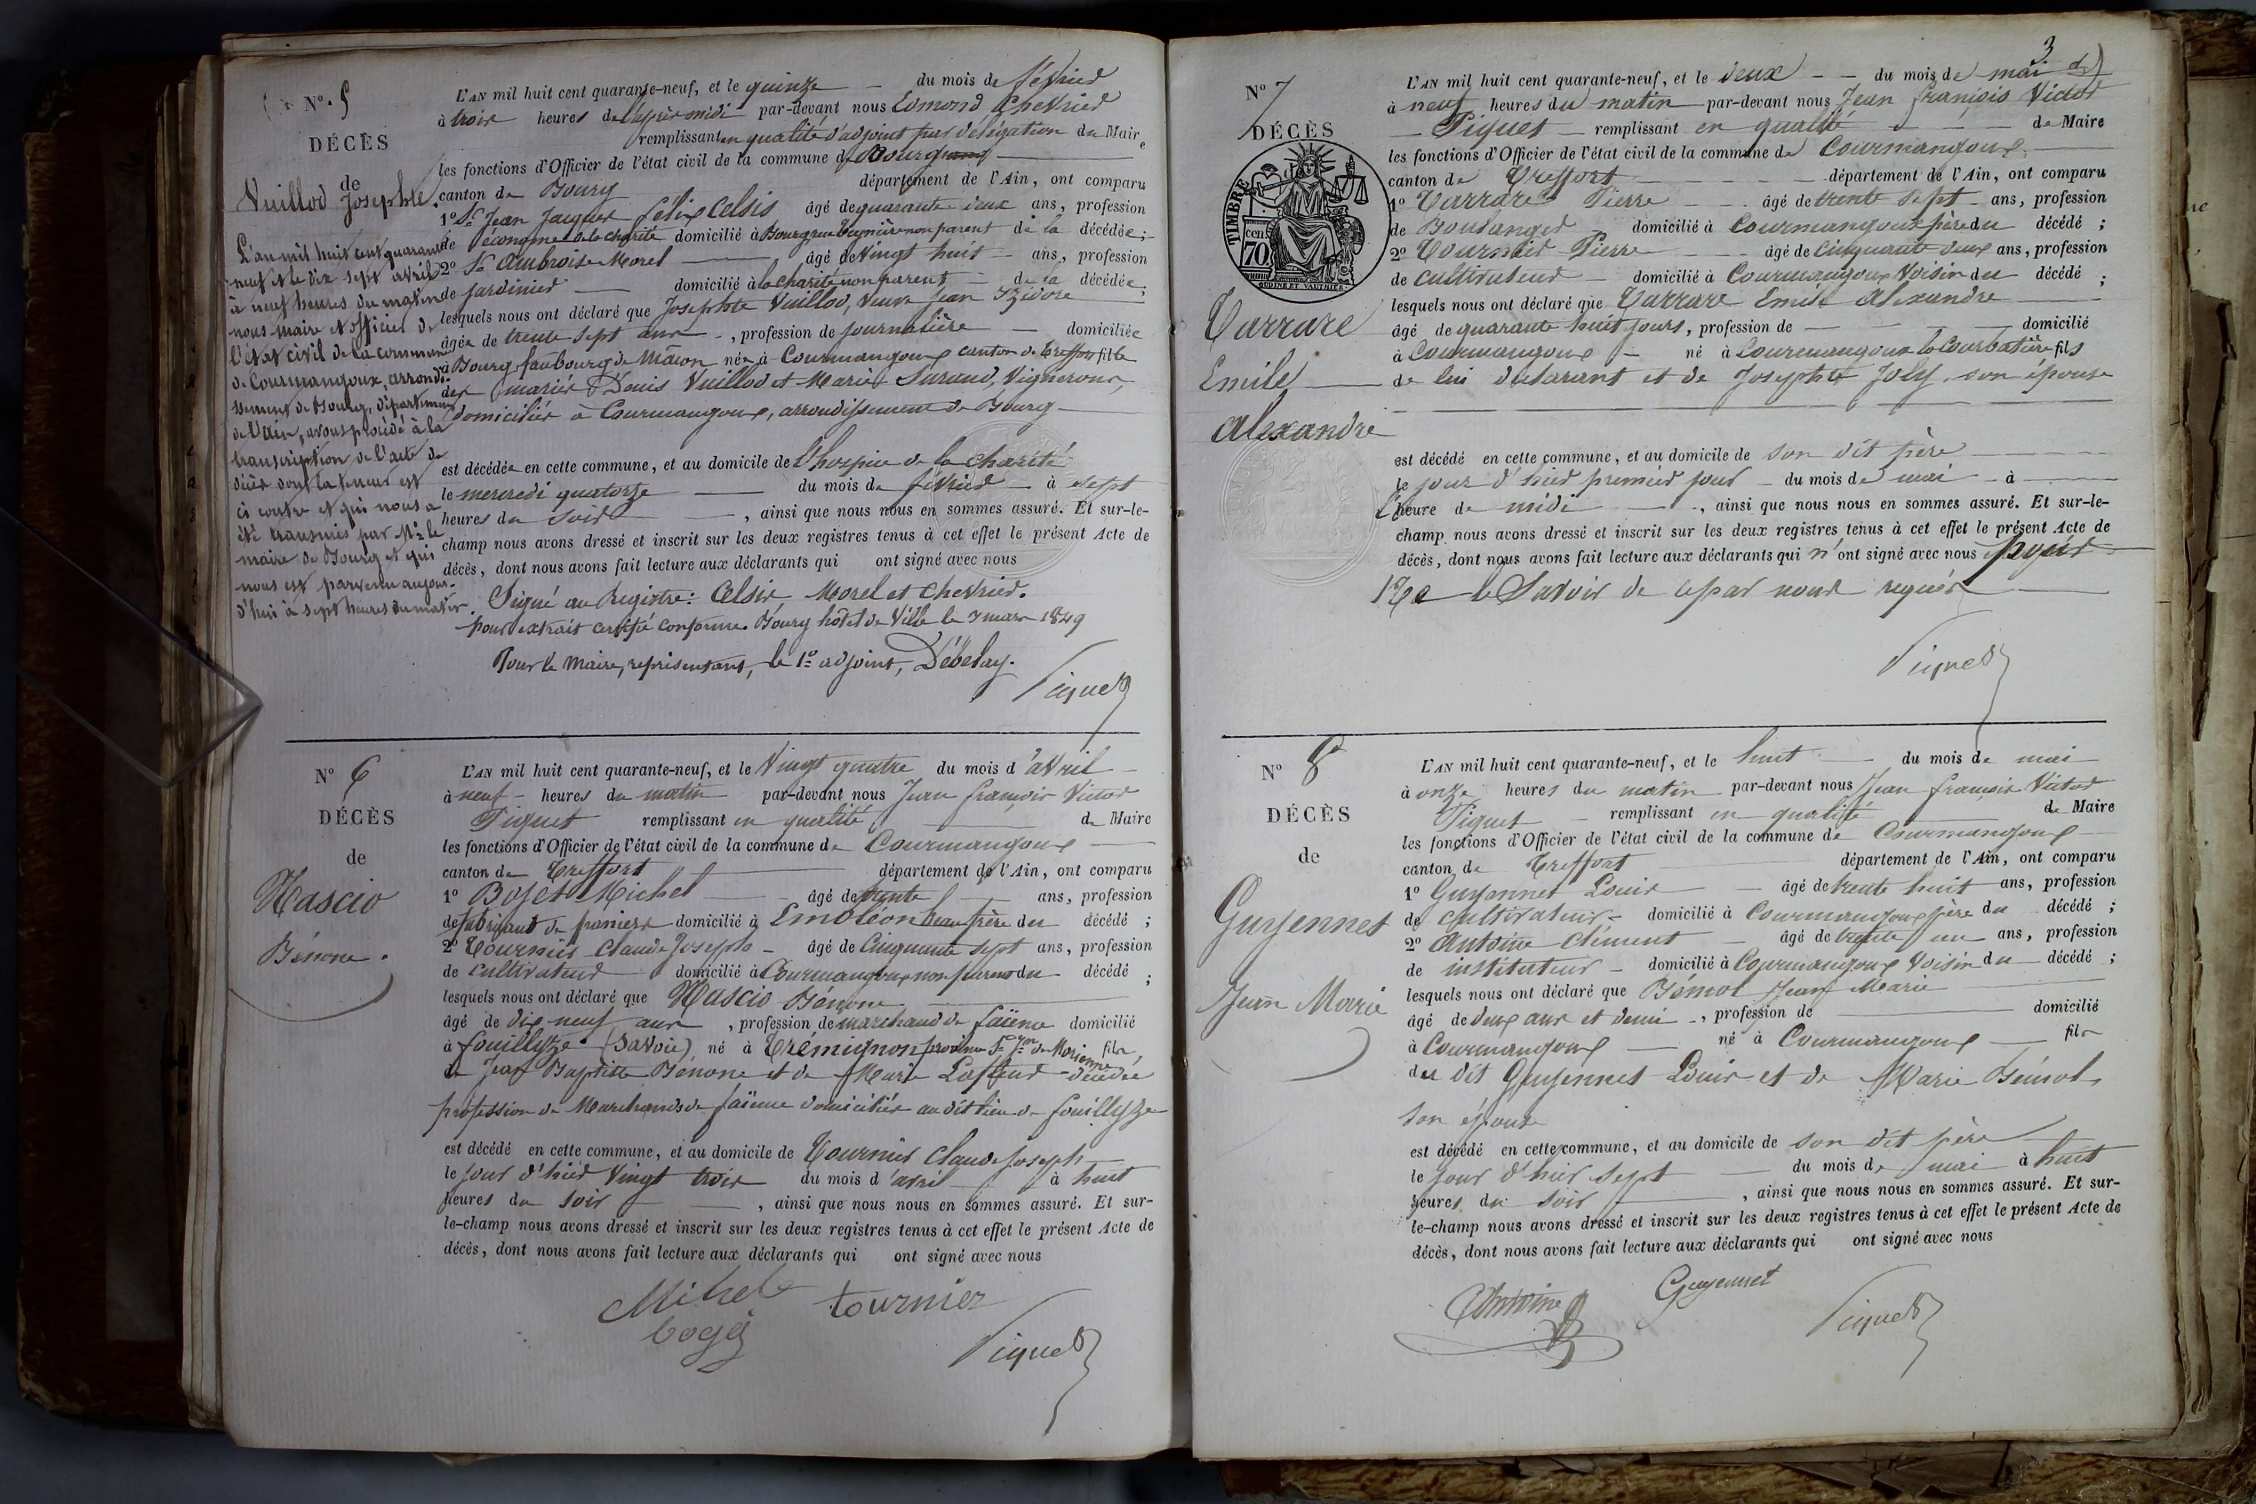 N° 5
DÉCÈS
de
Vuillod Josephte.
L'an mil huit cent quarante
neuf et le dix sept avril
à neuf heures du matin
nous maire et officier de
l'état civil de la commune
de Courmangoux, arrondis-
sement de Bourg, département
de l'Ain, avons procédé à la
transcription de l'acte de
décès dont la teneur est
ci contre et qui nous a
été transmis par Mr le
maire de Bourg et qui
nous est parvenu aujour-
d'hui à sept heures du matin.
L'AN mil huit cent quarante-neuf, et le quinze du mois de février
à trois heures de l'après midi par-devant nous Edmond Chevrier
remplissant en qualité d'adjoint par délégation du Maire
les fonctions d'Officier de l'état civil de la commune de Bourg
canton de Bourg département de l'Ain, ont comparu
1° Sr Jean Jacques Félix Celsis âgé de quarante deux ans, profession
de économe de la charité domicilié à Bourg non parent de la décédée;
2° Sr Ambroise Morel âgé de vingt huit ans, profession
de jardinier domicilié à la charité non parent de la décédée;
lesquels nous ont déclaré que Josephte Vuillod, veuve Jean Izidore
âgée de trente sept ans, profession de journalière domiciliée
à Bourg faubourg de Mâcon née à Courmangoux canton de Treffort fille
des mariés Denis Vuillod et Marie Suraud, Vignerons,
domiciliés à Courmangoux, arrondissement de Bourg
est décédée en cette commune, et au domicile de l'hospice de la charité
le mercredi quatorze du mois de février à sept
heures du soir, ainsi que nous nous en sommes assuré. Et sur-le-
champ nous avons dressé et inscrit sur les deux registres tenus à cet effet le présent Acte de
décès, dont nous avons fait lecture aux déclarants qui ont signé avec nous
Signé au Registre: Celsis Morel et Chevrier.
pour extrait certifié conforme. Bourg hôtel de Ville le 7 mars 1849
Pour le Maire, représentant, le 1er adjoint, Débelay.
Piquet
N° 6
DÉCÈS
de
Mascio
Bénone.
L'AN mil huit cent quarante-neuf, et le Vingt quatre du mois d'avril
à neuf heures du matin par-devant nous Jean françois Victor
Piquet remplissant en qualité de Maire
les fonctions d'Officier de l'état civil de la commune de Courmangoux
canton de Treffort département de l'Ain, ont comparu
1° Bojet Michel âgé de trente ans, profession
de fabricant de paniers domicilié à beau père du décédé;
2° Tournier Claude Joseph âgé de Cinquante sept ans, profession
de cultivateur domicilié à Courmangoux non parent du décédé;
lesquels nous ont déclaré que Mascio Bénone
âgé de dix neuf ans, profession de marchand de faïence domicilié
à fouillyze (Savoie) né à Trémignon province St Jn de Morienne fils
de Jean Baptiste Bénone et de Marie décédée
profession de Marchands de faïence domiciliés au dit lieu de fouillyze
est décédé en cette commune, et au domicile de Tournier Claude Joseph
le jour d'hier Vingt trois du mois d'avril à huit
heures du soir, ainsi que nous nous en sommes assuré. Et sur-
le-champ nous avons dressé et inscrit sur les deux registres tenus à cet effet le présent Acte de
décès, dont nous avons fait lecture aux déclarants qui ont signé avec nous
Michel tournier
bogé
Piquet
3
N° 7
DÉCÈS
de
TIMBRE
cen. 70
Carrare
Emile
Alexandre
L'AN mil huit cent quarante-neuf, et le deux du mois de mai
à neuf heures du matin par-devant nous Jean françois Victor
Piquet remplissant en qualité de Maire
les fonctions d'Officier de l'état civil de la commune de Courmangoux
canton de Treffort département de l'Ain, ont comparu
1° Carrare Pierre âgé de trente sept ans, profession
de Boulanger domicilié à Courmangoux père du décédé;
2° Tournier Pierre âgé de Cinquante deux ans, profession
de cultivateur domicilié à Courmangoux Voisin du décédé;
lesquels nous ont déclaré que Carrare Emile Alexandre
âgé de quarante huit jours, profession de domicilié
à Courmangoux né à Courmangoux la Courbatière fils
de lui déclarant et de Josephte Joly son épouse
est décédé en cette commune, et au domicile de son dit père
le jour d'hier premier jour du mois de mai à
l'heure de midi, ainsi que nous nous en sommes assuré. Et sur-le-
champ nous avons dressé et inscrit sur les deux registres tenus à cet effet le présent Acte de
décès, dont nous avons fait lecture aux déclarants qui n'ont signé avec nous pour
ne le Savoir de ce par nous requis
Piquet
N° 8
DÉCÈS
de
Guyennet
Jean Marie
L'AN mil huit cent quarante-neuf, et le huit du mois de mai
à onze heures du matin par-devant nous Jean françois Victor
Piquet remplissant en qualité de Maire
les fonctions d'Officier de l'état civil de la commune de Courmangoux
canton de Treffort département de l'Ain, ont comparu
1° Guyennet Louis âgé de trente huit ans, profession
de cultivateur domicilié à Courmangoux père du décédé;
2° Antoine Clément âgé de trente un ans, profession
de instituteur domicilié à Courmangoux Voisin du décédé;
lesquels nous ont déclaré que Bémol Jean Marie
âgé de deux ans et demi, profession de domicilié
à Courmangoux né à Courmangoux fils
du dit Guyennet Louis et de Marie Bémol,
son épouse
est décédé en cette commune, et au domicile de son dit père
le jour d'hier sept du mois de mai à huit
heures du soir, ainsi que nous nous en sommes assuré. Et sur-
le-champ nous avons dressé et inscrit sur les deux registres tenus à cet effet le présent Acte de
décès, dont nous avons fait lecture aux déclarants qui ont signé avec nous
Antoine Guyennet
Piquet